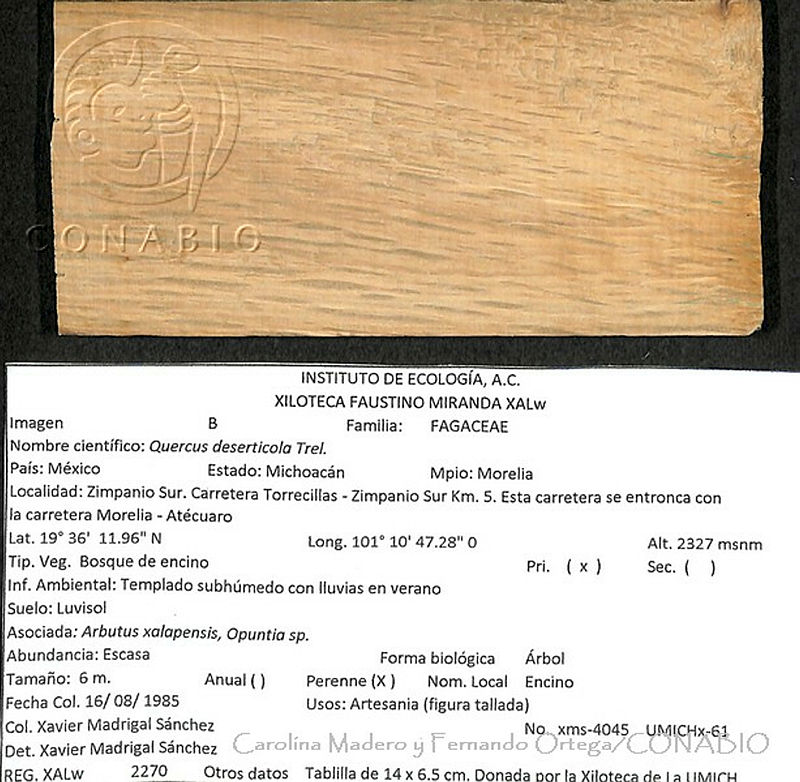 CONABIO
INSTITUTO DE ECOLOGÍA, A.C.
XILOTECA FAUSTINO MIRANDA XALw
Imagen B Familia: FAGACEAE
Nombre científico: Quercus deserticola Trel.
País: México Estado: Michoacán Mpio: Morelia
Localidad: Zimpanio Sur. Carretera Torrecillas - Zimpanio Sur Km. 5. Esta carretera se entronca con
la carretera Morelia - Atécuaro
Lat. 19° 36' 11.96" N Long. 101° 10' 47.28" O Alt. 2327 msnm
Tip. Veg. Bosque de encino Pri. ( x ) Sec. ( )
Inf. Ambiental: Templado subhúmedo con lluvias en verano
Suelo: Luvisol
Asociada: Arbutus xalapensis, Opuntia sp.
Abundancia: Escasa Forma biológica Árbol
Tamaño: 6 m. Anual ( ) Perenne (X ) Nom. Local Encino
Fecha Col. 16/ 08/ 1985 Usos: Artesania (figura tallada)
Col. Xavier Madrigal Sánchez No. xms-4045 UMICHx-61
Det. Xavier Madrigal Sánchez Carolina Madero y Fernando Ortega/CONABIO
REG. XALw 2270 Otros datos Tablilla de 14 x 6.5 cm. Donada por la Xiloteca de La UMICH